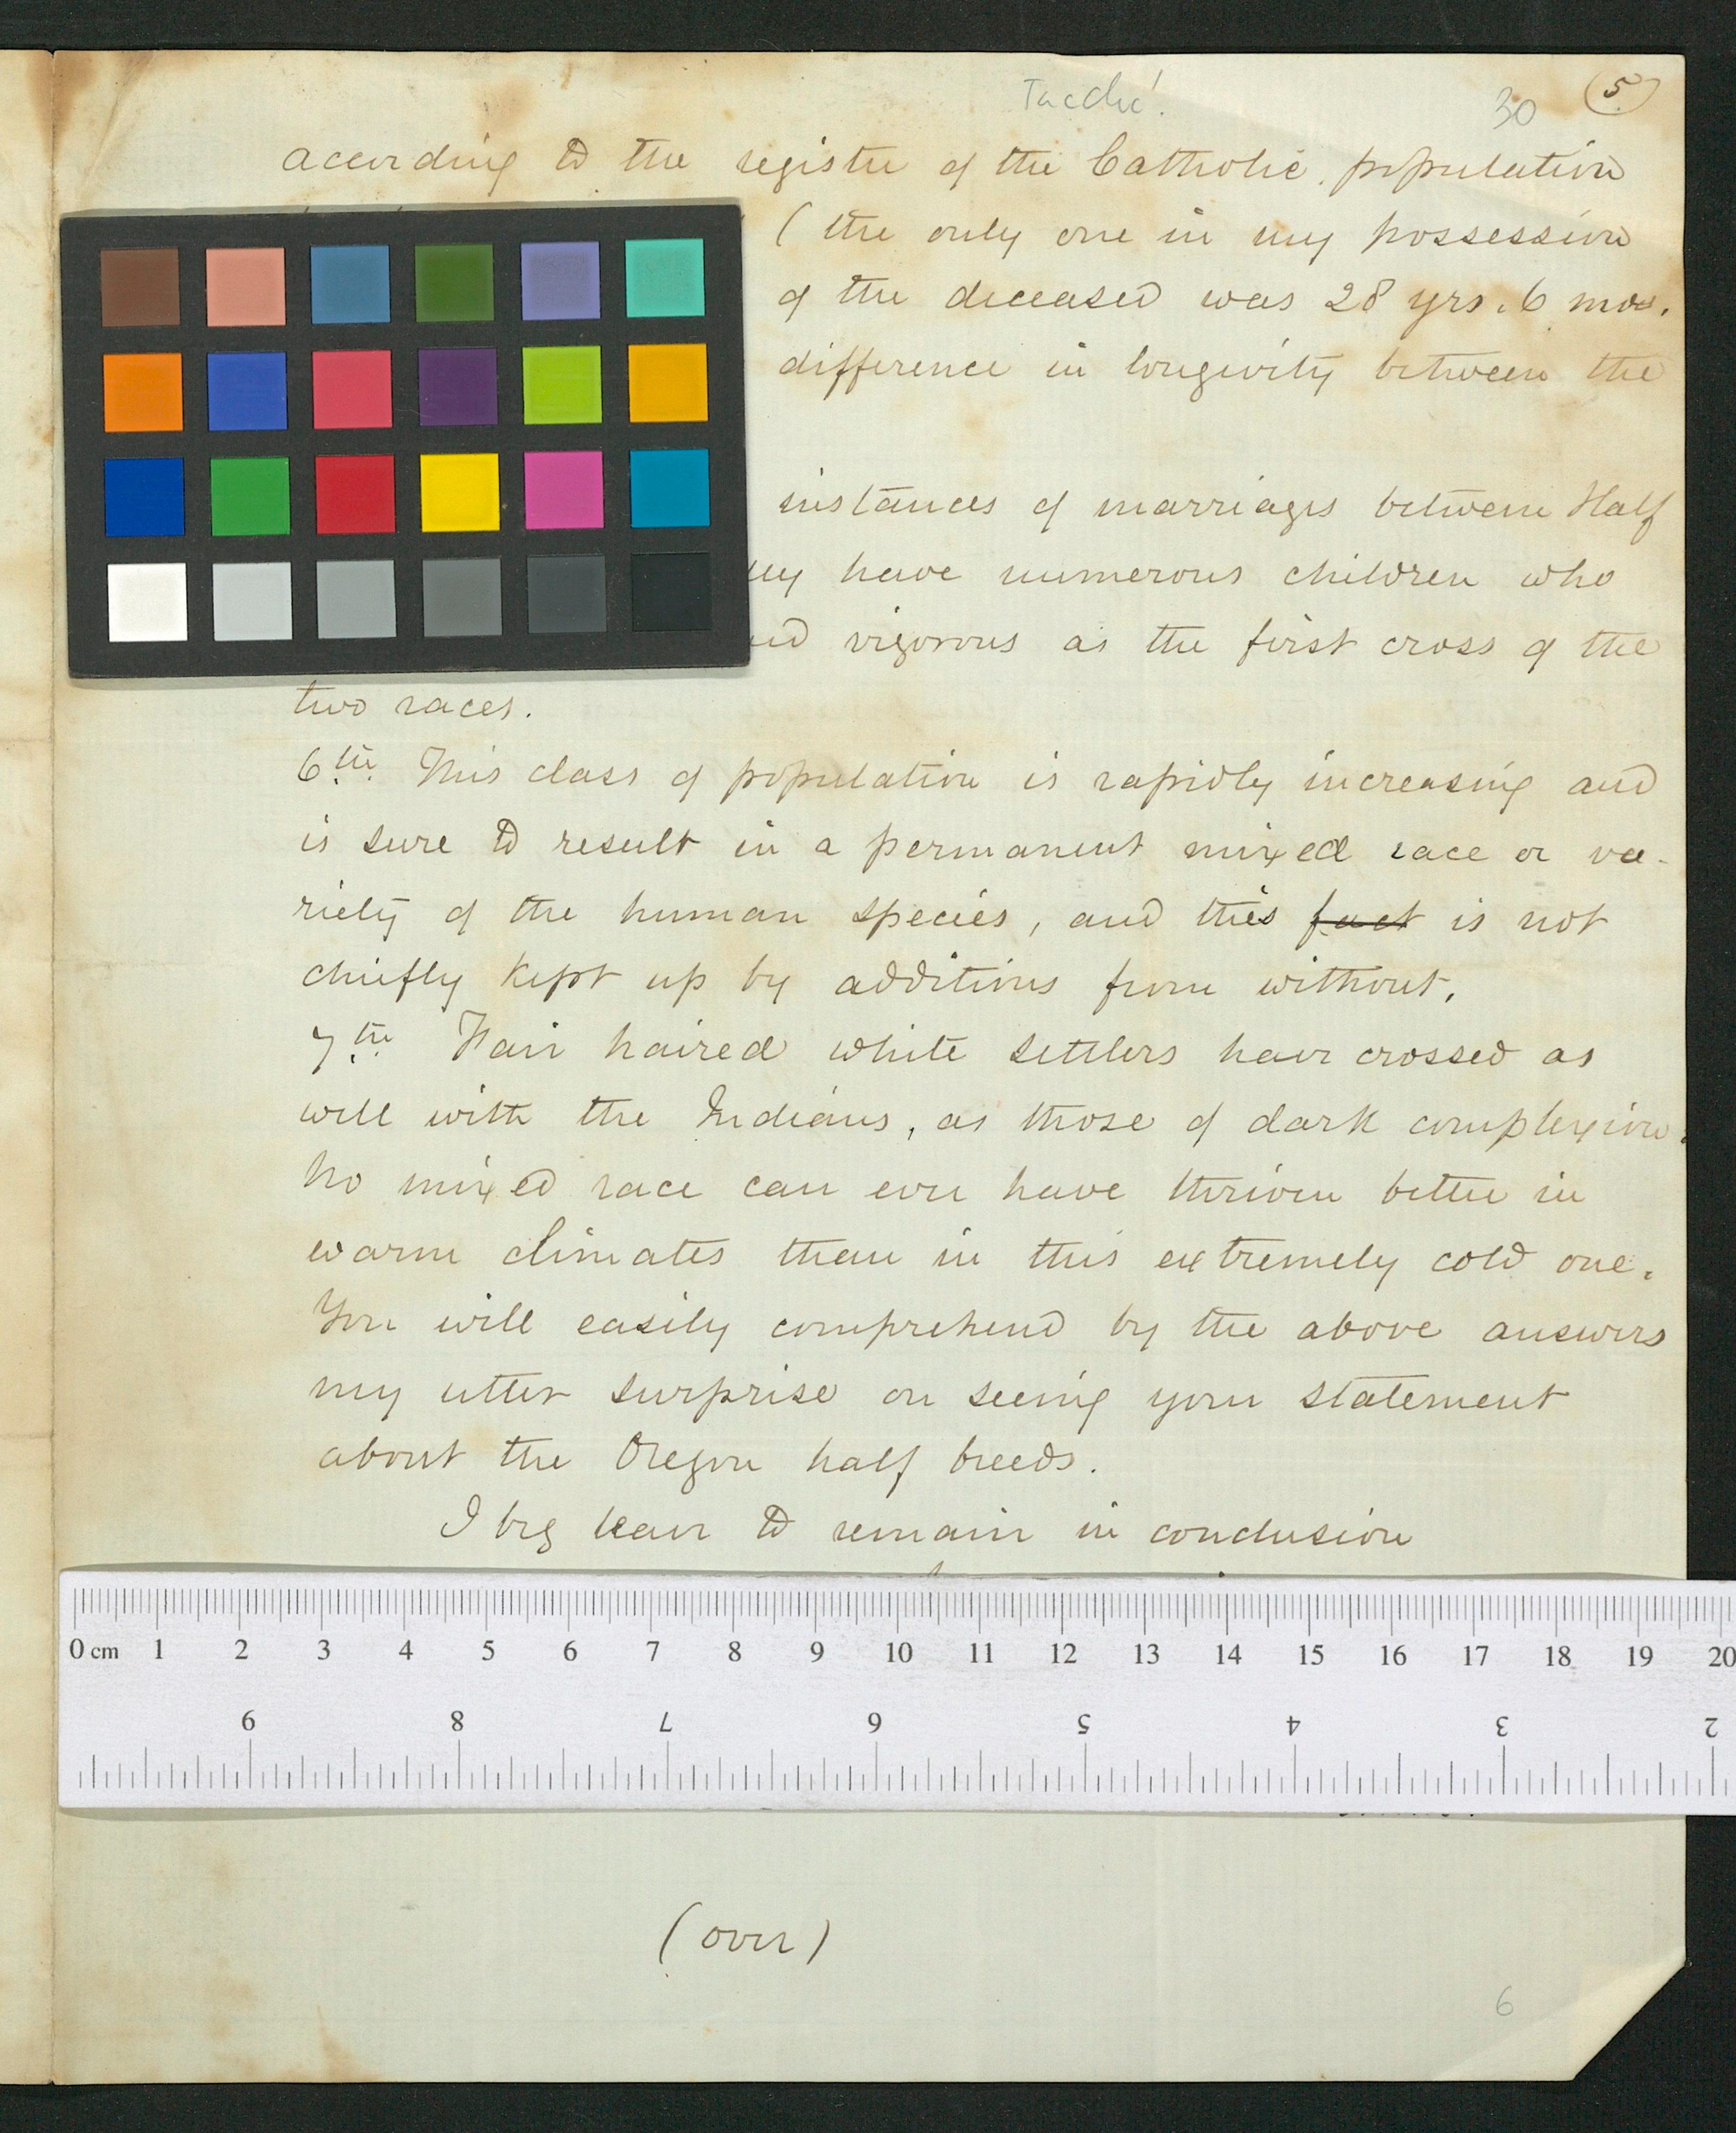 Taché!
30
5
according to the register of the Catholic population
( the only one in my possession
of the deceased was 28 yrs. 6 mos.
difference in longevity between the
instances of marriages between Half
have numerous children who
vigorous as the first cross of the
two races.
6th This class of population is rapidly increasing and
is sure to result in a permanent mixed race or va-
riety of the human species, and this fact is not
chiefly kept up by additions from without.
7th Fair haired white settlers have crossed as
well with the Indians, as those of dark complexion.
No mixed race can ever have thriven better in
warm climates than in this extremely cold one.
You will easily comprehend by the above answers
my utter surprise on seeing your statement
about the Oregon half breeds.
I beg leave to remain in conclusion
0 cm 1 2 3 4 5 6 7 8 9 10 11 12 13 14 15 16 17 18 19 20
9 8 7 6 5 4 3 2
(over)
6